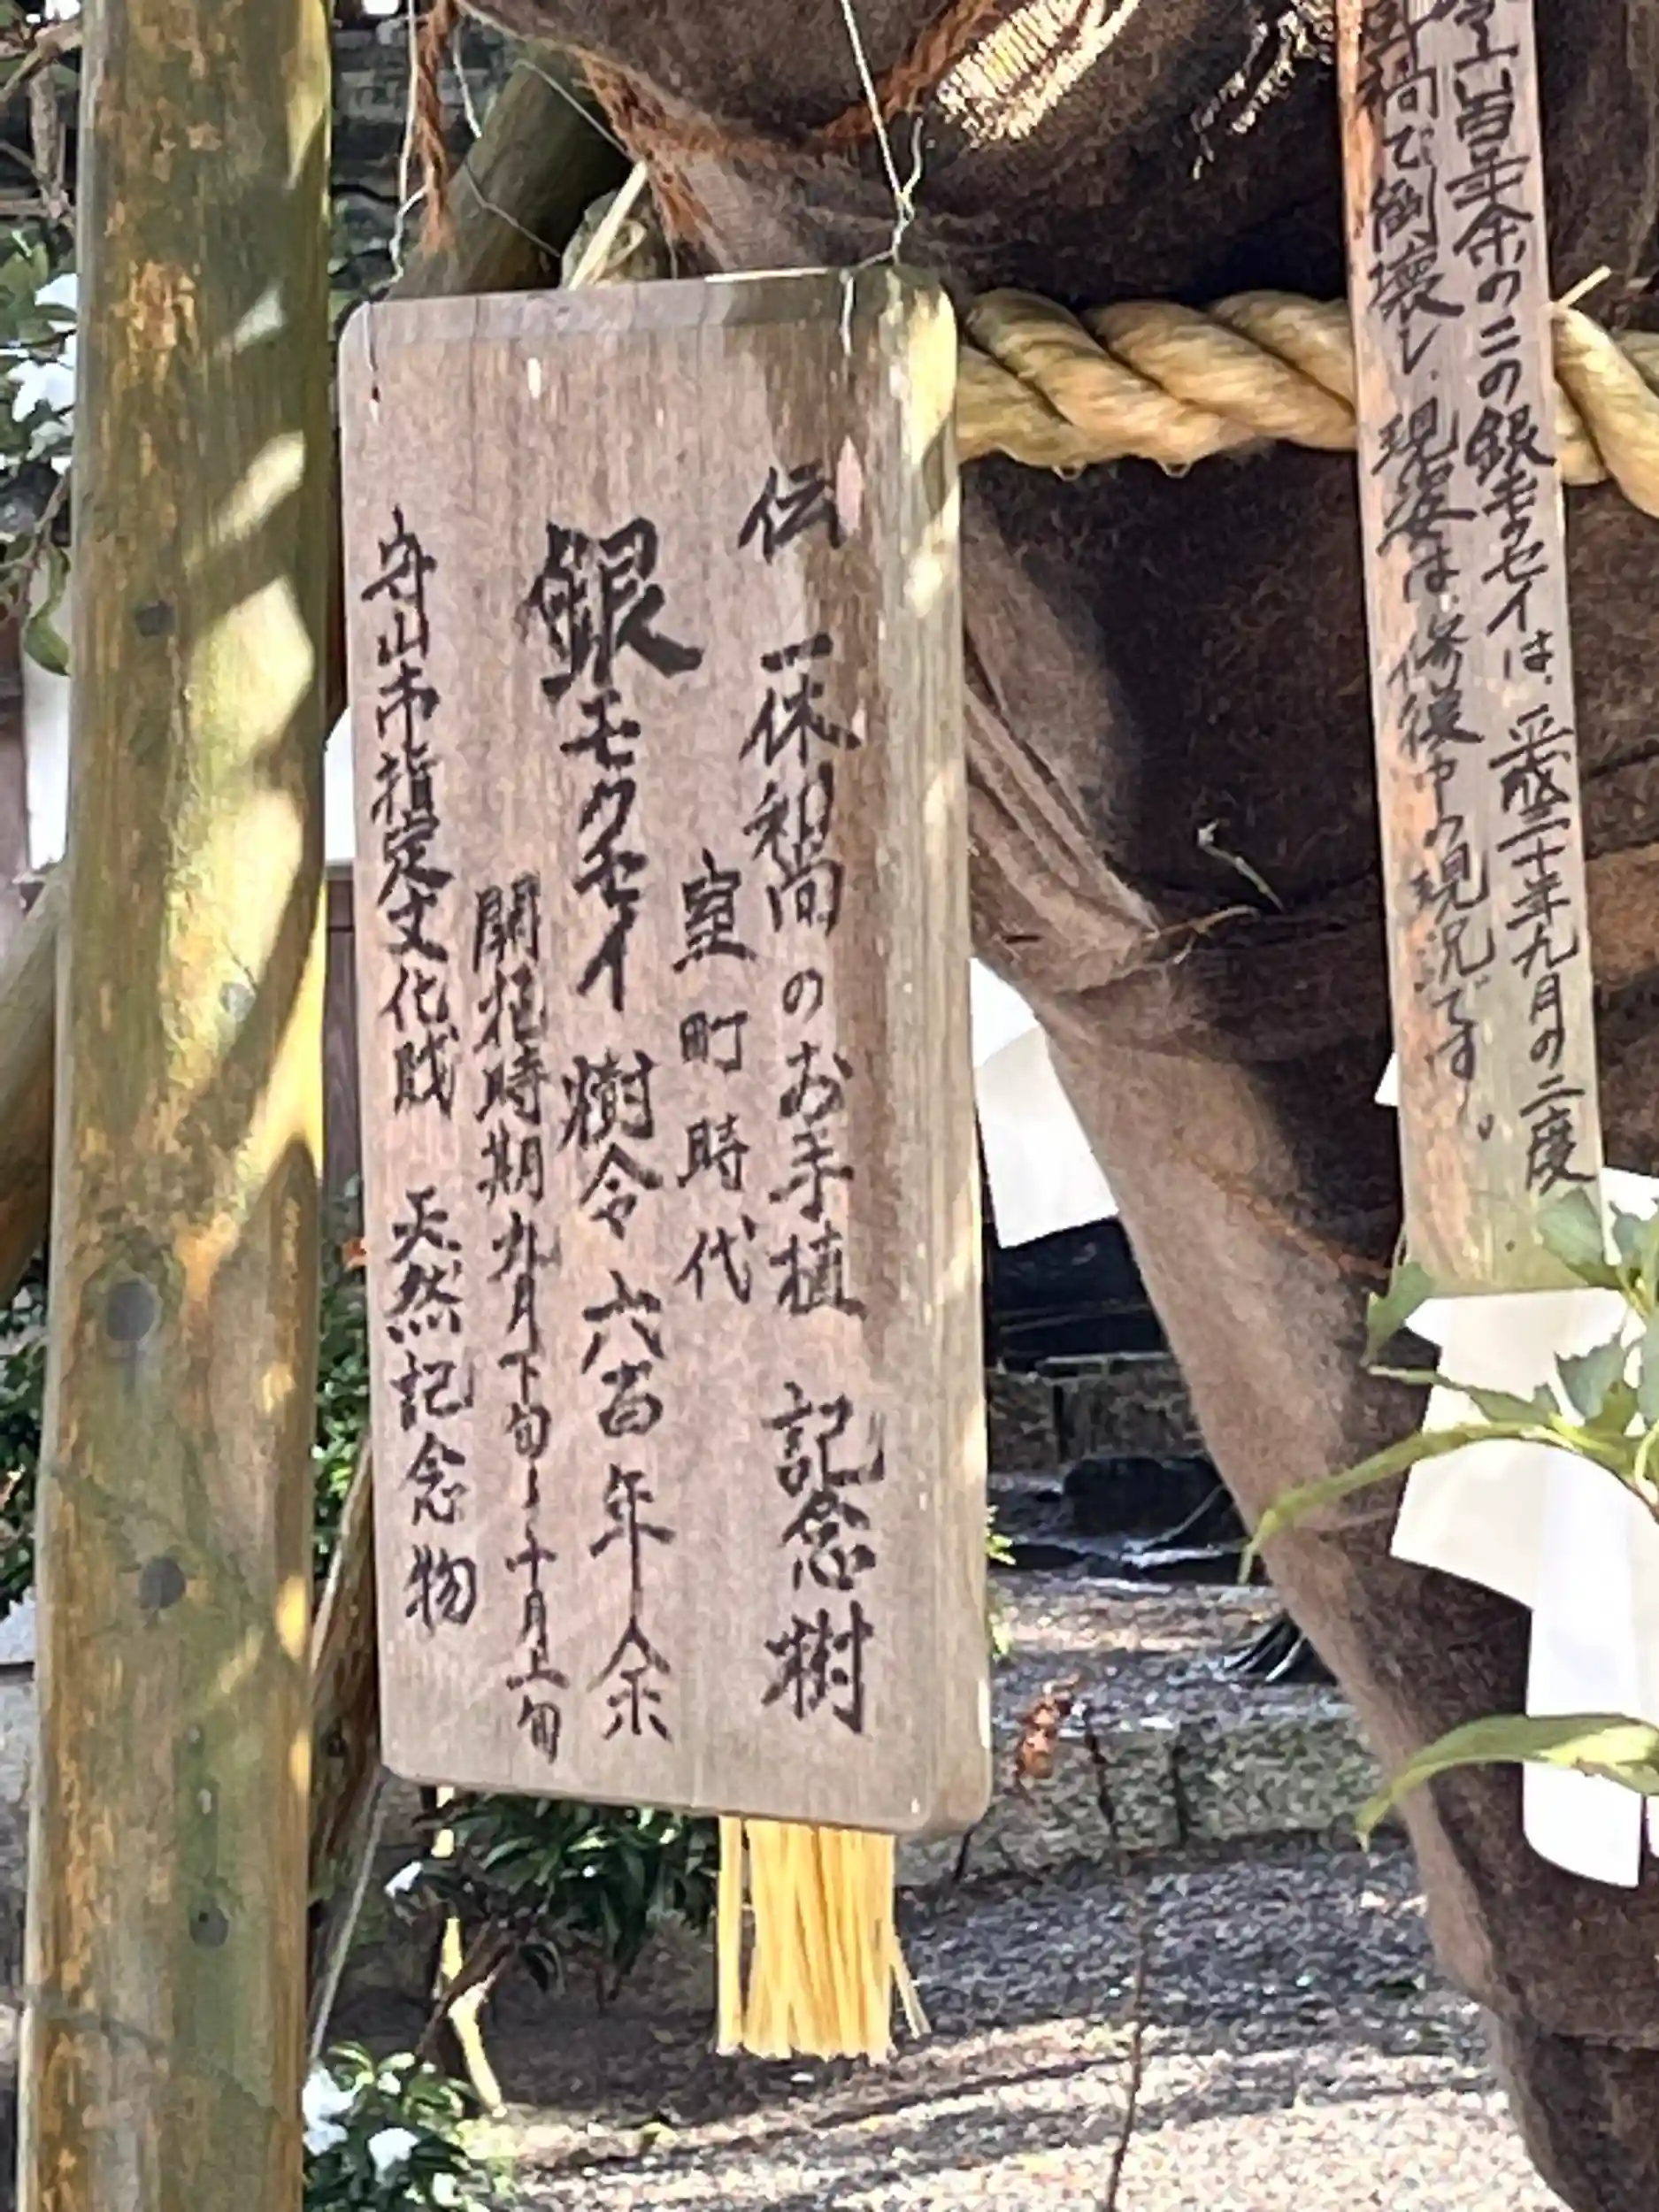 令六百年余の二の銀モクセイは、平成二十年九月の二度
禍で倒壊し、現姿は、修復中の現況です。
伝 一休和尚のお手植 記念樹
室町時代
銀モクセイ 樹令六百年余
開花時期 九月下旬〜十月上旬
守山市指定文化財 天然記念物